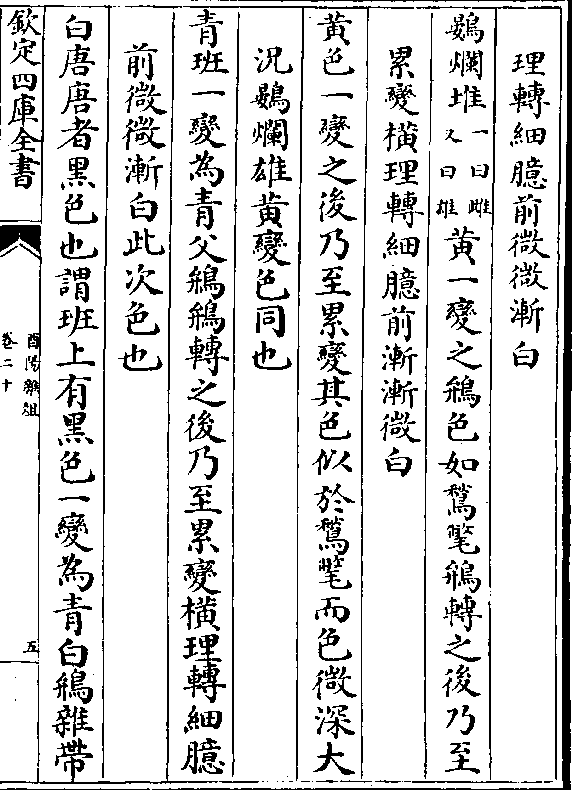 理轉細臆前微微漸白
鷃爛堆一曰雌又曰雄黃一變之鴘色如鶖氅鴘轉之後乃至
累變橫理轉細臆前漸漸微白
黃色一變之後乃至累變其色似於鶖氅而色微深大
況鷃爛雄黃變色同也
青班一變為青父鴘鴘轉之後乃至累變橫理轉細臆
前微微漸白此次色也
白唐唐者黑色也謂班上有黑色一變為青白鴘雜帶
欽定四庫全書
酉陽雜俎
卷二十
五